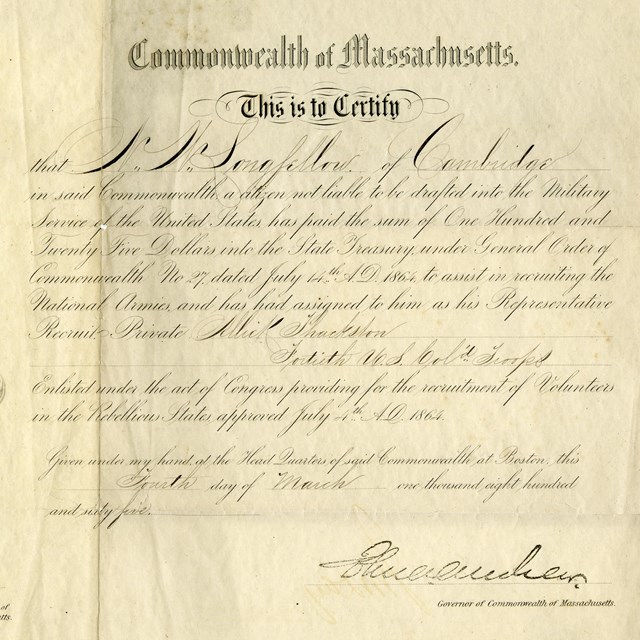 Commonwealth of Massachusetts.
This is to Certify
that H. W. Longfellow of Cambridge
in said Commonwealth a citizen not liable to be drafted into the Military
Service of the United States, has paid the sum of One Hundred and
Twenty Five Dollars into the State Treasury, under General Order of
Commonwealth No 27, dated July 14th A.D. 1864, to assist in recruiting the
National Armies, and has had assigned to him as his Representative
Recruit, Private Thackston
U.S. Col'd Troops
Enlisted under the act of Congress providing for the recruitment of Volunteers
in the Rebellious States, approved July 4th A.D. 1864.
Given under my hand, at the Head Quarters of said Commonwealth, at Boston, this
Fourth day of March one thousand eight hundred
and sixty five
Governor of Commonwealth of Massachusetts.
of
tts.